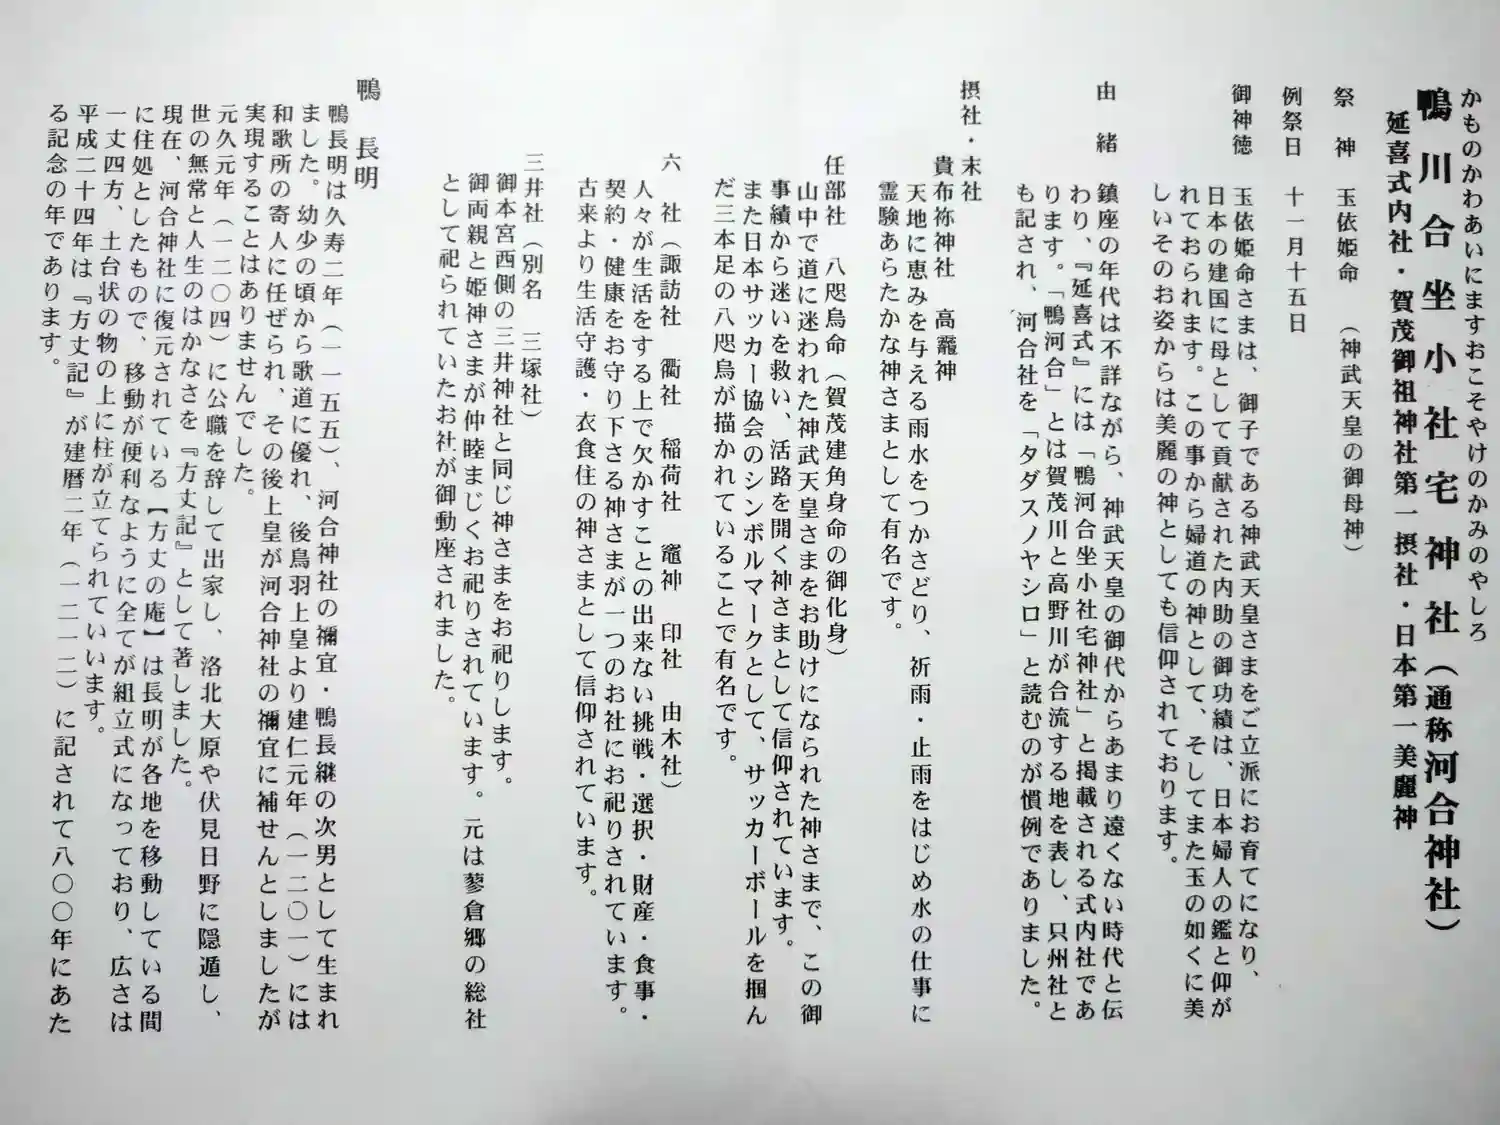 かものかわあいにますおこそやけのかみのやしろ
鴨川合坐小社宅神社（通称河合神社）
延喜式内社・賀茂御祖神社第一摂社・日本第一美麗神
祭　神　玉依姫命　（神武天皇の御母神）
例祭日　十一月十五日
御神徳　玉依姫命さまは、御子である神武天皇さまをご立派にお育てになり、
日本の建国に母として貢献された内助の御功績は、日本婦人の鑑と仰が
れております。この事から婦道の神として、そしてまた玉の如くに美
しいそのお姿からは美麗の神としても信仰されております。
由　緒　鎮座の年代は不詳ながら、神武天皇の御代からあまり遠くない時代と伝
わり、『延喜式』には「鴨河合坐小社宅神社」と掲載される式内社であ
ります。「鴨河合」とは賀茂川と高野川が合流する地を表し、只州社と
も記され、河合社を「タダスノヤシロ」と読むのが慣例でありました。
摂社・末社
貴布祢神社　高龗神
天地に恵みを与える雨水をつかさどり、祈雨・止雨をはじめ水の仕事に
霊験あらたかな神さまとして有名です。
任部社　八咫烏命（賀茂建角身命の御化身）
山中で道に迷われた神武天皇さまをお助けになられた神さまで、この御
事績から迷いを救い、活路を開く神さまとして信仰されています。
また日本サッカー協会のシンボルマークとして、サッカーボールを掴ん
だ三本足の八咫烏が描かれていることで有名です。
六　社（諏訪社　衢社　稲荷社　竈神　印社　由木社）
人々が生活をする上で欠かすことの出来ない挑戦・選択・財産・食事・
契約・健康をお守り下さる神さまが一つのお社にお祀りされています。
古来より生活守護・衣食住の神さまとして信仰されています。
三井社（別名　三塚社）
御本宮西側の三井神社と同じ神さまをお祀りします。
御両親と姫神さまが仲睦まじくお祀りされています。元は蓼倉郷の総社
として祀られていたお社が御動座されました。
鴨　長明
鴨長明は久寿二年（一一五五）、河合神社の禰宜・鴨長継の次男として生まれ
ました。幼少の頃から歌道に優れ、後鳥羽上皇より建仁元年（一二〇一）には
和歌所の寄人に任ぜられ、その後上皇が河合神社の禰宜に補せんとしましたが
実現することはありませんでした。
元久元年（一二〇四）に公職を辞して出家し、洛北大原や伏見日野に隠遁し、
世の無常と人生のはかなさを『方丈記』として著しました。
現在、河合神社に復元されている【方丈の庵】は長明が各地を移動している間
に住処としたもので、移動が便利なように全てが組立式になっており、広さは
一丈四方、土台状の物の上に柱が立てられていいます。
平成二十四年は『方丈記』が建暦二年（一二一二）に記されて八〇〇年にあた
る記念の年であります。